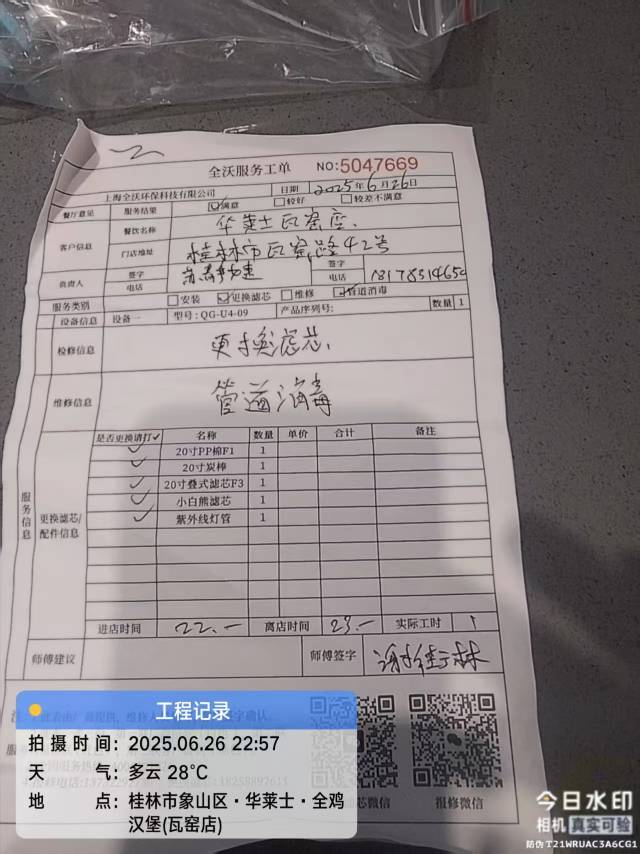 全沃服务工单 NO:5047669
上海全沃环保科技有限公司 日期 2025年6月26日
餐厅意见 服务结果 满意 较好 较差不满意
客户信息 餐饮名称 华莱士瓦窑店
门店地址 桂林市瓦窑路42号
负责人 签字 签字
电话 电话
服务类别 安装 更换滤芯 维修 管道消毒
设备信息 设备一 型号:QG-U4-09 产品序列号: 数量 1
检修信息 更换滤芯
维修信息 管道消毒
服务信息
更换滤芯/配件信息
是否更换请打✓ 名称 数量 单价 合计 备注
✓ 20寸PP棉F1 1
✓ 20寸炭棒 1
✓ 20寸叠式滤芯F3 1
✓ 小白熊滤芯 1
✓ 紫外线灯管 1
进店时间 22.- 离店时间 23.- 实际工时 1
师傅建议 师傅签字
报修微信
工程记录
拍摄时间: 2025.06.26 22:57
天气: 多云 28°C
地点: 桂林市象山区·华莱士·全鸡
汉堡(瓦窑店)
今日水印
相机 真实可验
防伪 T21WRUAC3A6CG1